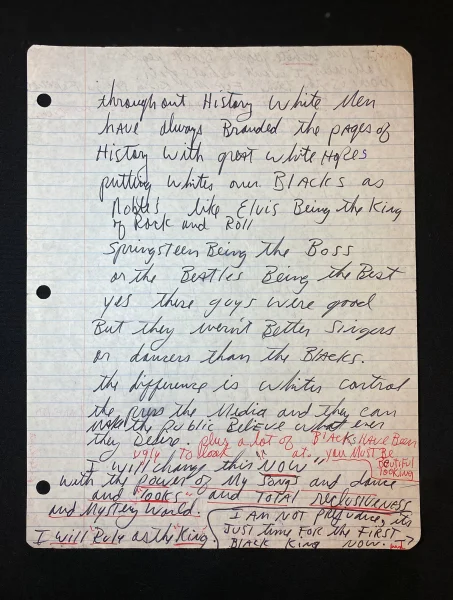 throughout History White Men
have always Branded the pages of
History with great white Hopes
putting whites over Blacks as
Nobles like Elvis Being the King
of Rock and Roll
Springsteen Being the Boss
or the Beatles Being the Best
yes these guys were good
But they weren't Better Singers
or dancers than the Blacks.
the difference is whites control
the press the Media and they can
make the public Believe what ever
they Desire. plus a lot of Blacks Have Been
ugly to look at. you Must Be
beutiful
looking
"I will change this NOW"
with the power of My Songs and dance
and "looks" and TOTAL reclusiveness
and Mystery World.
I will Rule as the King.
I AM NOT prejudice, its
JUST time FOR the FIRST
BLACK King NOW.